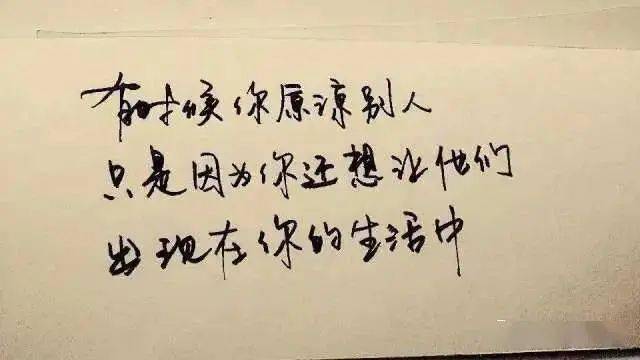 有时候你原谅别人
只是因为你还想让他们
出现在你的生活中